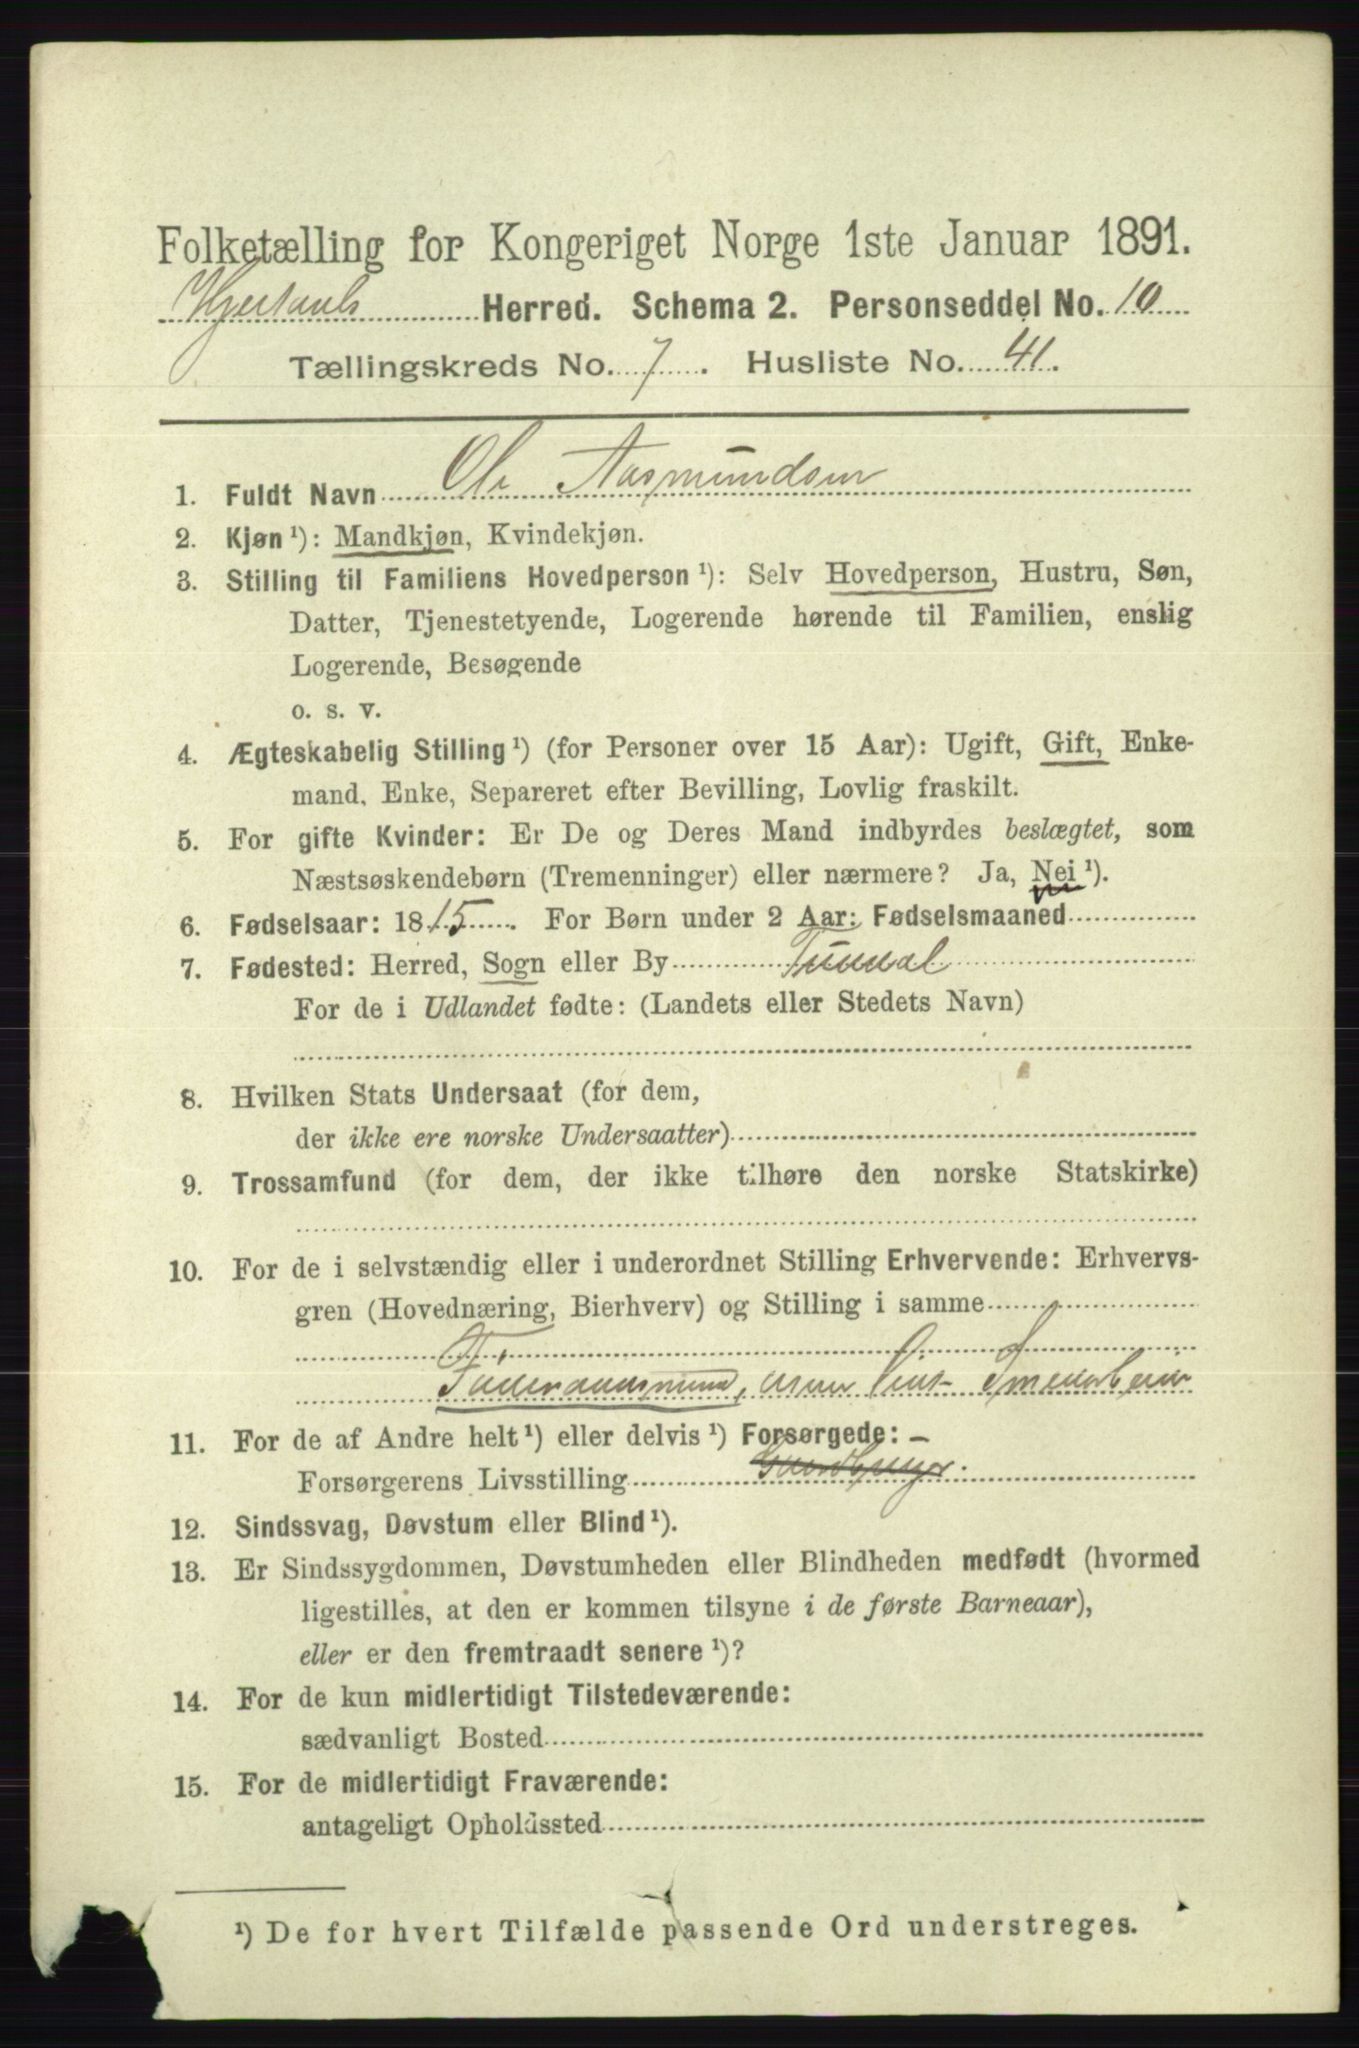 Folketælling for Kongeriget Norge 1ste Januar 1891.
Hjertdals Herred. Schema 2. Personseddel No. 10
Tællingskreds No. 7. Husliste No. 41.
1. Fuldt Navn Ole Aasmundsen
2. Kjøn ¹): Mandkjøn, Kvindekjøn.
3. Stilling til Familiens Hovedperson ¹): Selv Hovedperson, Hustru, Søn,
Datter, Tjenestetyende, Logerende hørende til Familien, enslig
Logerende, Besøgende
o. s. v.
4. Ægteskabelig Stilling ¹) (for Personer over 15 Aar): Ugift, Gift, Enke-
mand, Enke, Separeret efter Bevilling, Lovlig fraskilt.
5. For gifte Kvinder: Er De og Deres Mand indbyrdes beslægtet, som
Næstsøskendebørn (Tremenninger) eller nærmere? Ja, Nei ¹).
6. Fødselsaar: 1815. For Børn under 2 Aar: Fødselsmaaned
7. Fødested: Herred, Sogn eller By Tuddal
For de i Udlandet fødte: (Landets eller Stedets Navn)
8. Hvilken Stats Undersaat (for dem,
der ikke ere norske Undersaatter)
9. Trossamfund (for dem, der ikke tilhøre den norske Statskirke)
10. For de i selvstændig eller i underordnet Stilling Erhvervende: Erhvervs-
gren (Hovednæring, Bierhverv) og Stilling i samme
11. For de af Andre helt ¹) eller delvis ¹) Forsørgede: –
Forsørgerens Livsstilling
12. Sindssvag, Døvstum eller Blind ¹).
13. Er Sindssygdommen, Døvstumheden eller Blindheden medfødt (hvormed
ligestilles, at den er kommen tilsyne i de første Barneaar),
eller er den fremtraadt senere ¹)?
14. For de kun midlertidigt Tilstedeværende:
sædvanligt Bosted
15. For de midlertidigt Fraværende:
antageligt Opholdssted
¹) De for hvert Tilfælde passende Ord understreges.